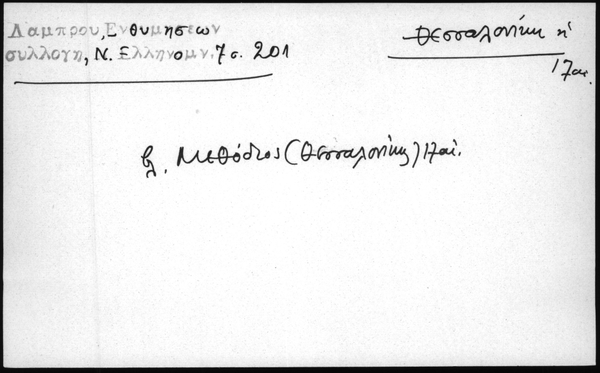 Λαμπρου, Ενθυμησεων
συλλογη, Ν. Ελληνομν. 7 σ. 201
Θεσσαλονίκη
17 αι.
βλ. Μεθόδιος (Θεσσαλονίκης) 17 αι.